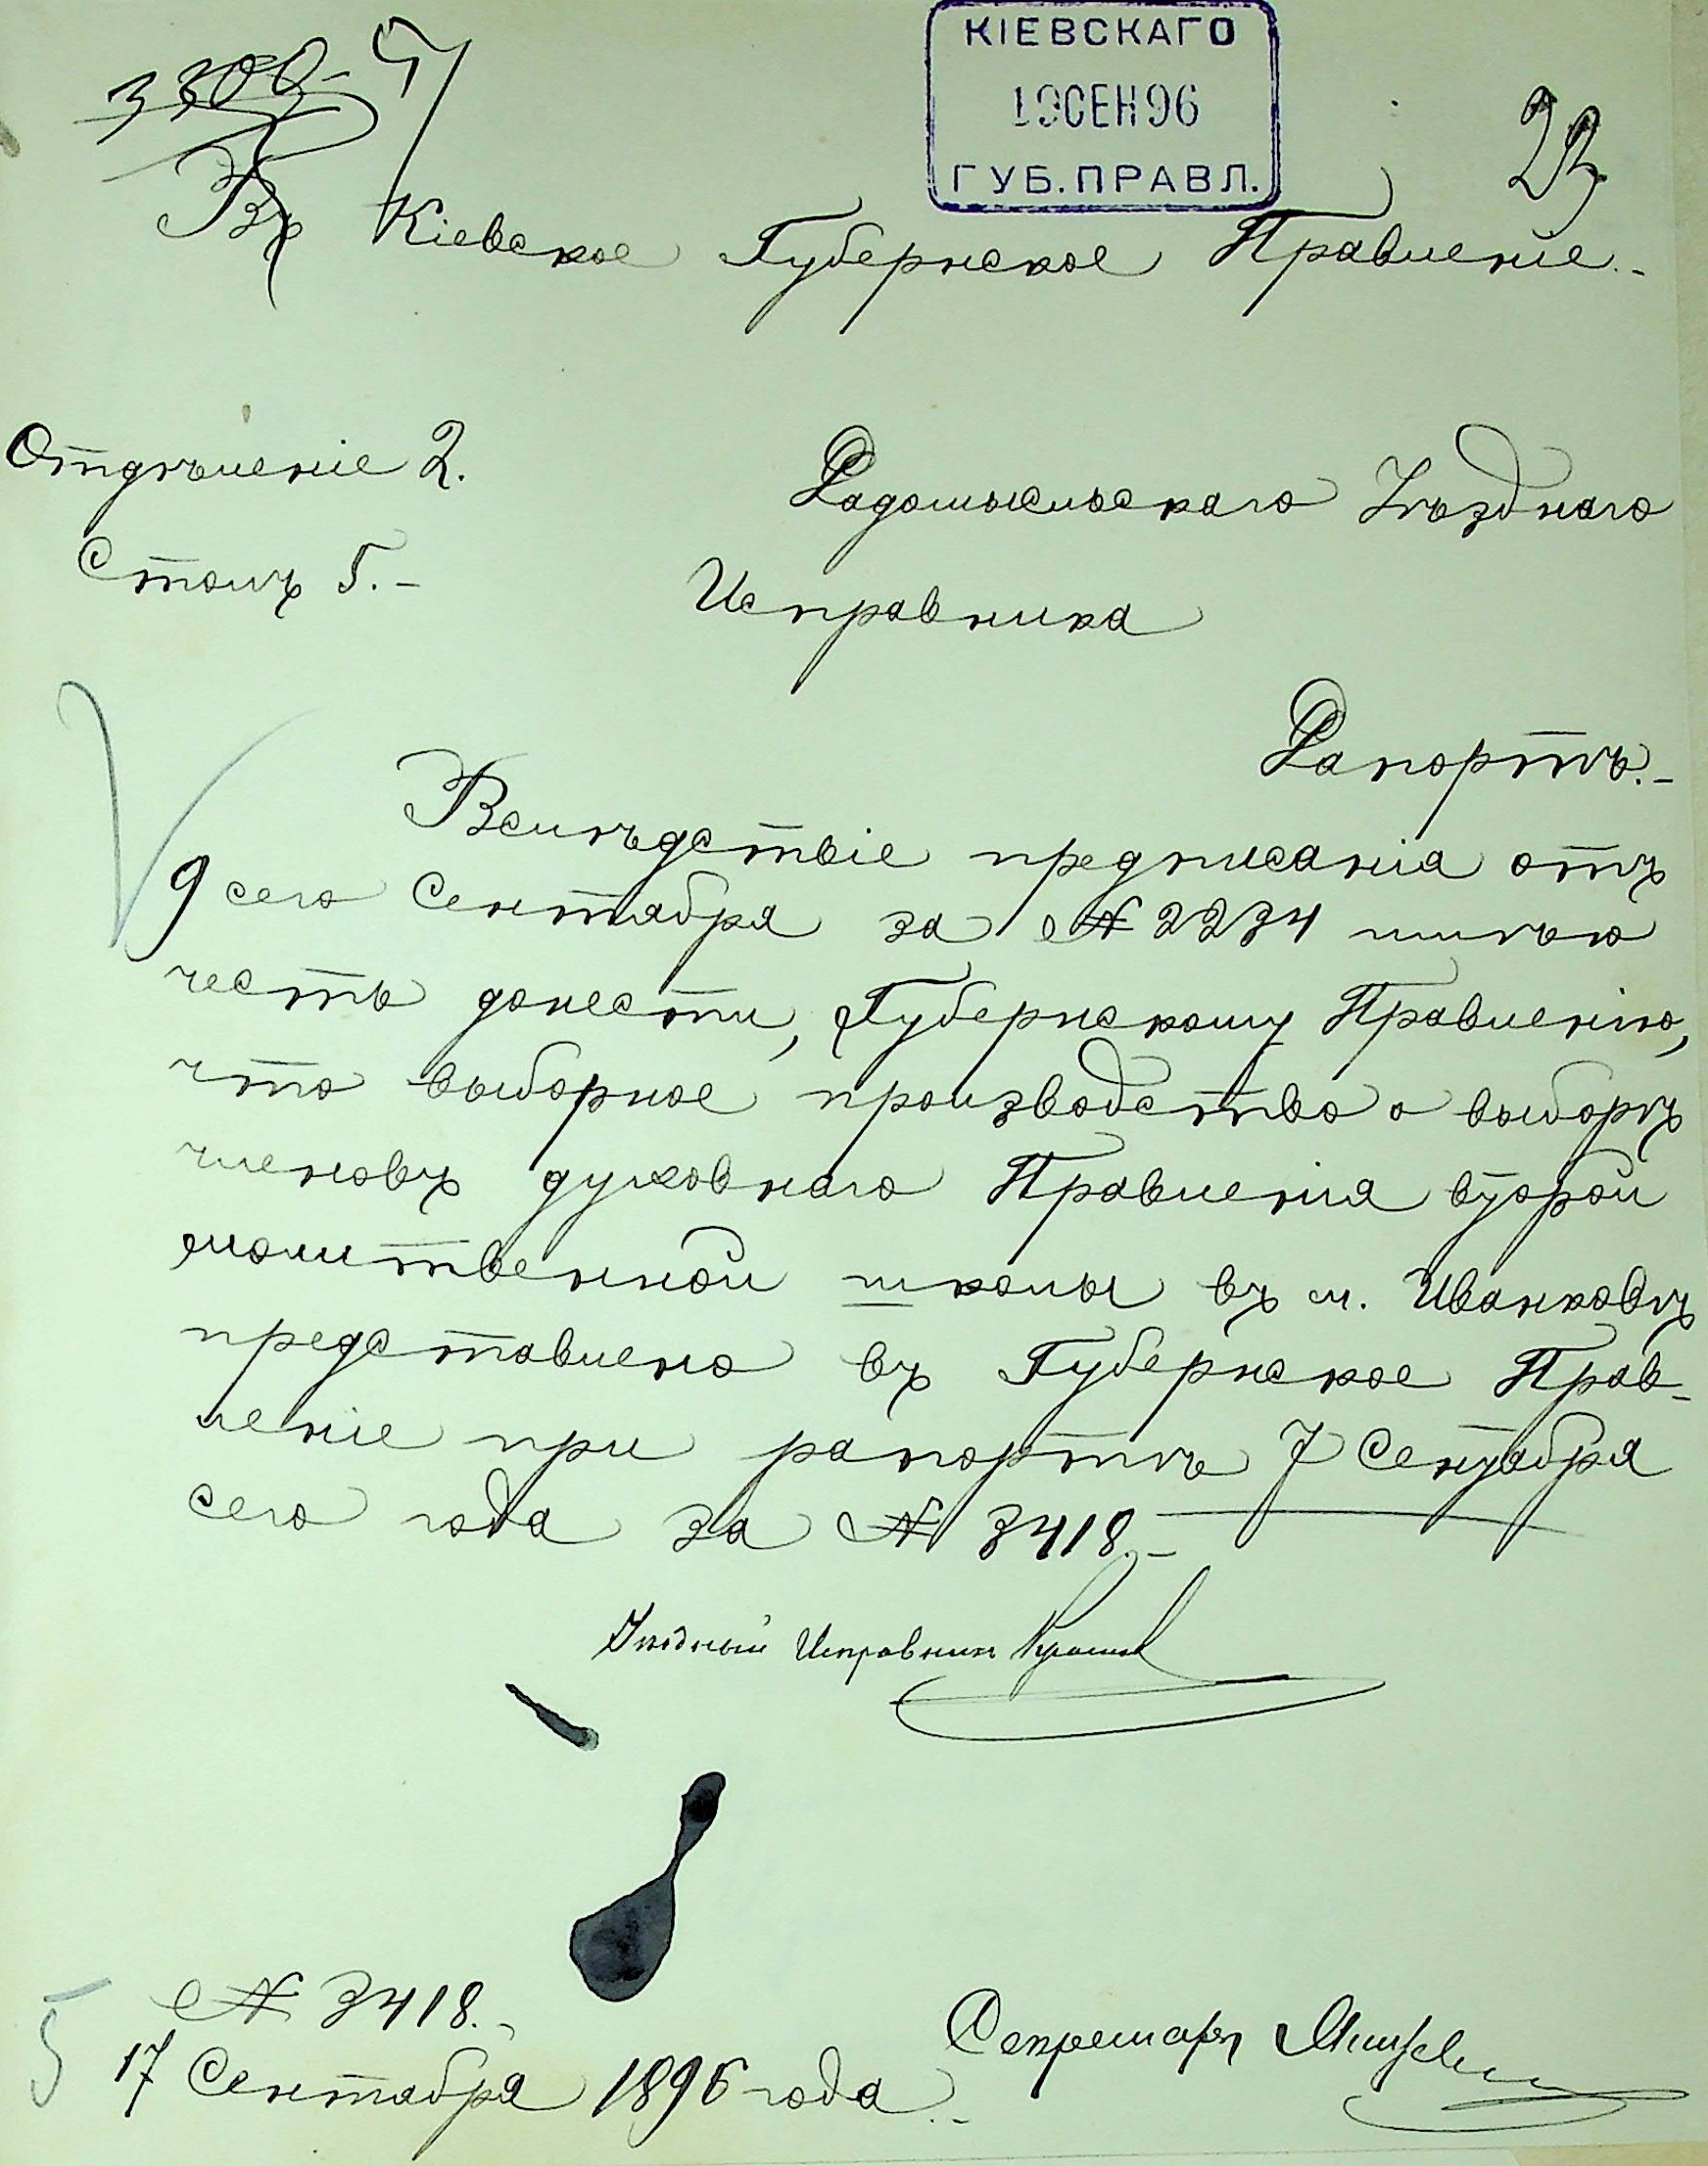 КІЕВСКАГО
19 СЕН 96
ГУБ. ПРАВЛ.
3300
23
Въ Кіевское Губернское Правленіе.-
Отдѣленіе 2.
Столъ 5.-
Радомысльскаго Уѣзднаго
Исправника
Рапортъ.-
Вслѣдствіе предписанія отъ
9 сего Сентября за № 2234 имѣю
честь донести, Губернскому Правленію,
что выборное производство о выборѣ
членовъ духовнаго Правленія второй
молитвенной школы въ м. Иванковѣ
представлено въ Губернское Прав-
леніе при рапортѣ 7 Сентября
сего года за № 3418.-
Уѣздный Исправникъ
№ 3418.-
17 Сентября 1896 года.-
Секретарь
5